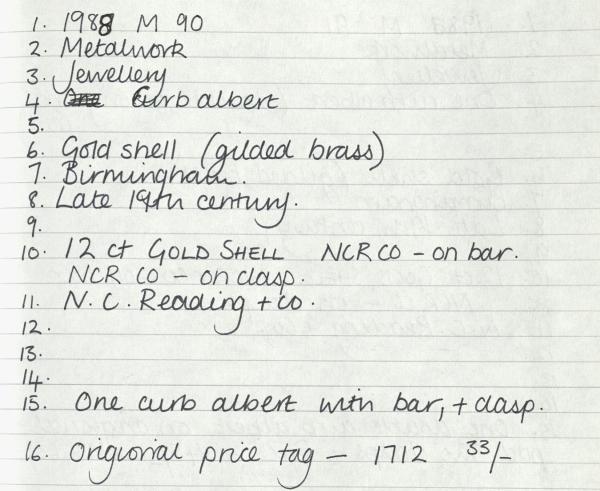 1. 1988 M 90
2. Metalwork
3. Jewellery
4. Curb albert
5.
6. Gold shell (gilded brass)
7. Birmingham.
8. Late 19th century.
9.
10. 12 ct GOLD SHELL NCR CO - on bar.
NCR CO - on clasp.
11. N.C. Reading + co.
12.
13.
14.
15. One curb albert with bar, + clasp.
16. Origional price tag - 1712 33/-